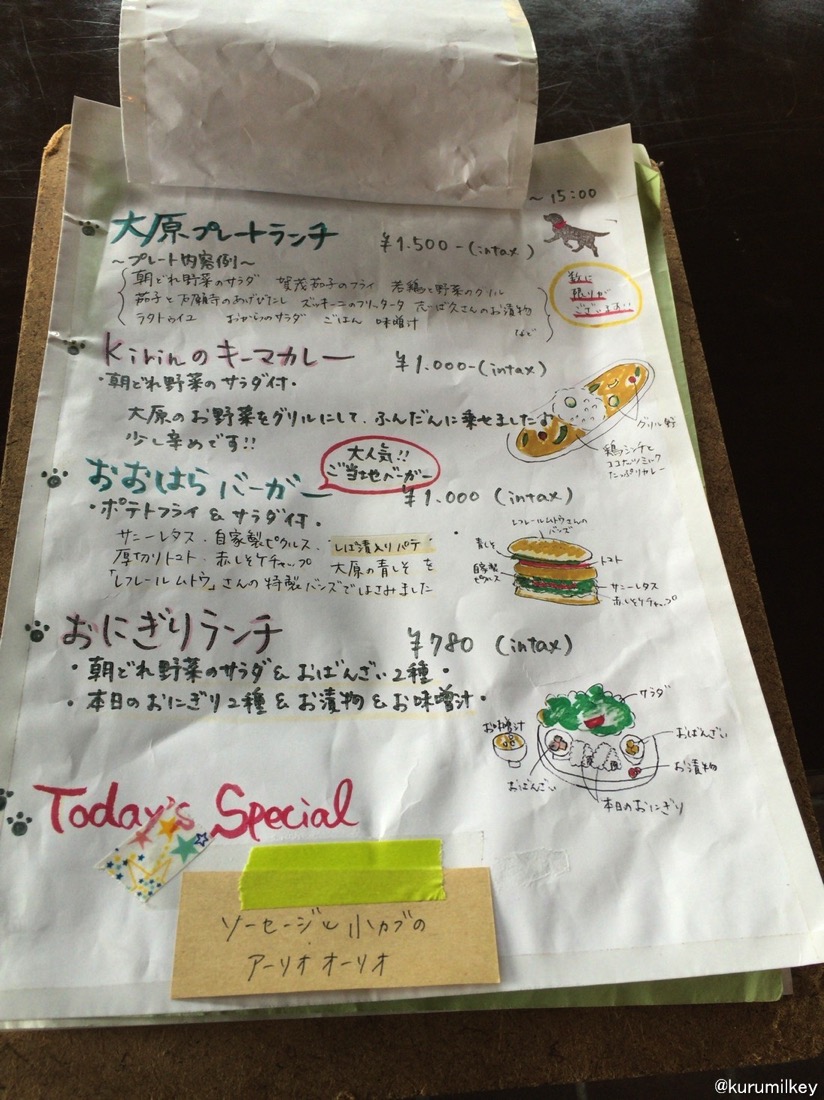 ～15:00
大原プレートランチ ￥1.500-(intax)
～プレート内容例～
朝どれ野菜のサラダ 賀茂茄子のフライ 若鶏と野菜のグリル
茄子と万願寺のあげびたし ズッキーニのフリッタータ 志ば久さんのお漬物
ラタトゥイユ おからのサラダ ごはん 味噌汁
など
数に
限りが
ございます
Kirinのキーマカレー ￥1.000-(intax)
・朝どれ野菜のサラダ付・
大原のお野菜をグリルにして、ふんだんに乗せましたよ
少し辛めです!!
グリル野
鶏ミンチと
ココナツミルク
たっぷりカレー
大人気!!
ご当地バーガー
おおはらバーガー ￥1.000 (intax)
・ポテトフライ & サラダ付・
サニーレタス・自家製ピクルス・しば漬入りパテ・
厚切りトマト・赤しそケチャップ 大原の青しそ を
「レフレールムトウ」さんの特製バンズではさみました
レフレールムトウさんの
バンズ
青しそ
トマト
自家製
ピクルス
サニーレタス
赤しそケチャップ
おにぎりランチ ￥780 (intax)
・朝どれ野菜のサラダ & おばんざい2種・
・本日のおにぎり2種 & お漬物 & お味噌汁・
サラダ
お味噌汁
おばんざい
おばんざい
お漬物
本日のおにぎり
Today's Special
ソーセージと小カブの
アーリオオーリオ
@kurumilkey